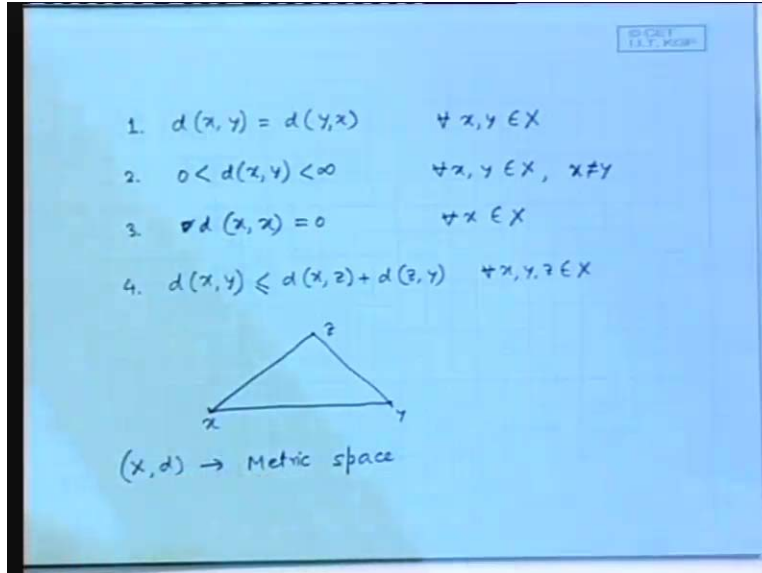 © CET
I.I.T. KGP
1. d(x, y) = d(y,x) ∀ x, y ∈ X
2. 0 < d(x, y) < ∞ ∀x, y ∈ X, x≠y
3. d(x, x) = 0 ∀ x ∈ X
4. d(x, y) ⩽ d(x, z) + d(z, y) ∀ x, y, z ∈ X
z
x y
(X, d) → Metric space